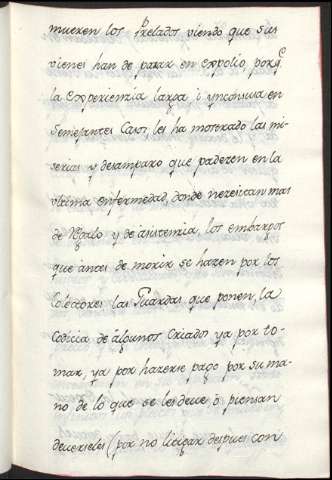 mueren los Prelados viendo que sus
vienes han de parar en expolio porq.e
la experienzia larga, i ynconcusa en
Semejantes Casos les ha mostrado las mi-
serias y desamparo que padezen en la
ultima enfermedad, donde nezesitan mas
de Regalo y de asistenzia, los embargos
que antes de morir se hazen por los
Colectores las Guardas que ponen, la
Codicia de algunos Criados ya por to-
mar, ya por hazerse pago por su ma-
no de lo que se les deue ò piensan
deuerseles (por no litigar despues con